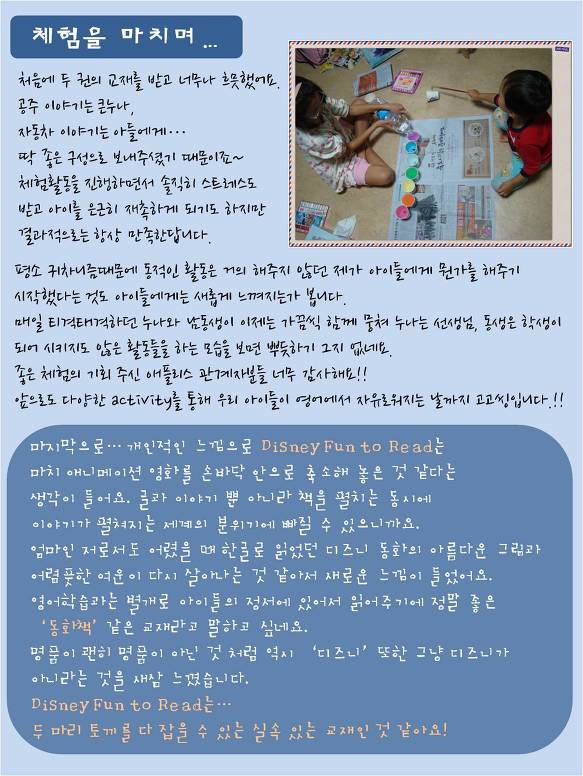 체험을 마치며...
처음에 두 권의 교재를 받고 너무나 흐뭇했어요.
공주 이야기는 큰누나,
자동차 이야기는 아들에게…
딱 좋은 구성으로 보내주셨기 때문이죠~
체험활동을 진행하면서 솔직히 스트레스도
받고 아이를 은근히 재촉하게 되기도 하지만
결과적으로는 항상 만족한답니다.
평소 귀차니즘때문에 동적인 활동은 거의 해주지 않던 제가 아이들에게 뭔가를 해주기
시작했다는 것도 아이들에게는 새롭게 느껴지는가 봅니다.
매일 티격태격하던 누나와 남동생이 이제는 가끔씩 함께 뭉쳐 누나는 선생님, 동생은 학생이
되어 시키지도 않은 활동들을 하는 모습을 보면 뿌듯하기 그지 없네요.
좋은 체험의 기회 주신 애플리스 관계자분들 너무 감사해요!!
앞으로도 다양한 activity를 통해 우리 아이들이 영어에서 자유로워지는 날까지 고고씽입니다.!!
마지막으로… 개인적인 느낌으로 Disney Fun to Read는
마치 애니메이션 영화를 손바닥 안으로 축소해 놓은 것 같다는
생각이 들어요. 글과 이야기 뿐 아니라 책을 펼치는 동시에
이야기가 펼쳐지는 세계의 분위기에 빠질 수 있으니까요.
엄마인 저로서도 어렸을 때 한글로 읽었던 디즈니 동화의 아름다운 그림과
어렴풋한 여운이 다시 살아나는 것 같아서 새로운 느낌이 들었어요.
영어학습과는 별개로 아이들의 정서에 있어서 읽어주기에 정말 좋은
‘동화책’ 같은 교재라고 말하고 싶네요.
명품이 괜히 명품이 아닌 것 처럼 역시 ‘디즈니’ 또한 그냥 디즈니가
아니라는 것을 새삼 느꼈습니다.
Disney Fun to Read는…
두 마리 토끼를 다 잡을 수 있는 실속 있는 교재인 것 같아요!